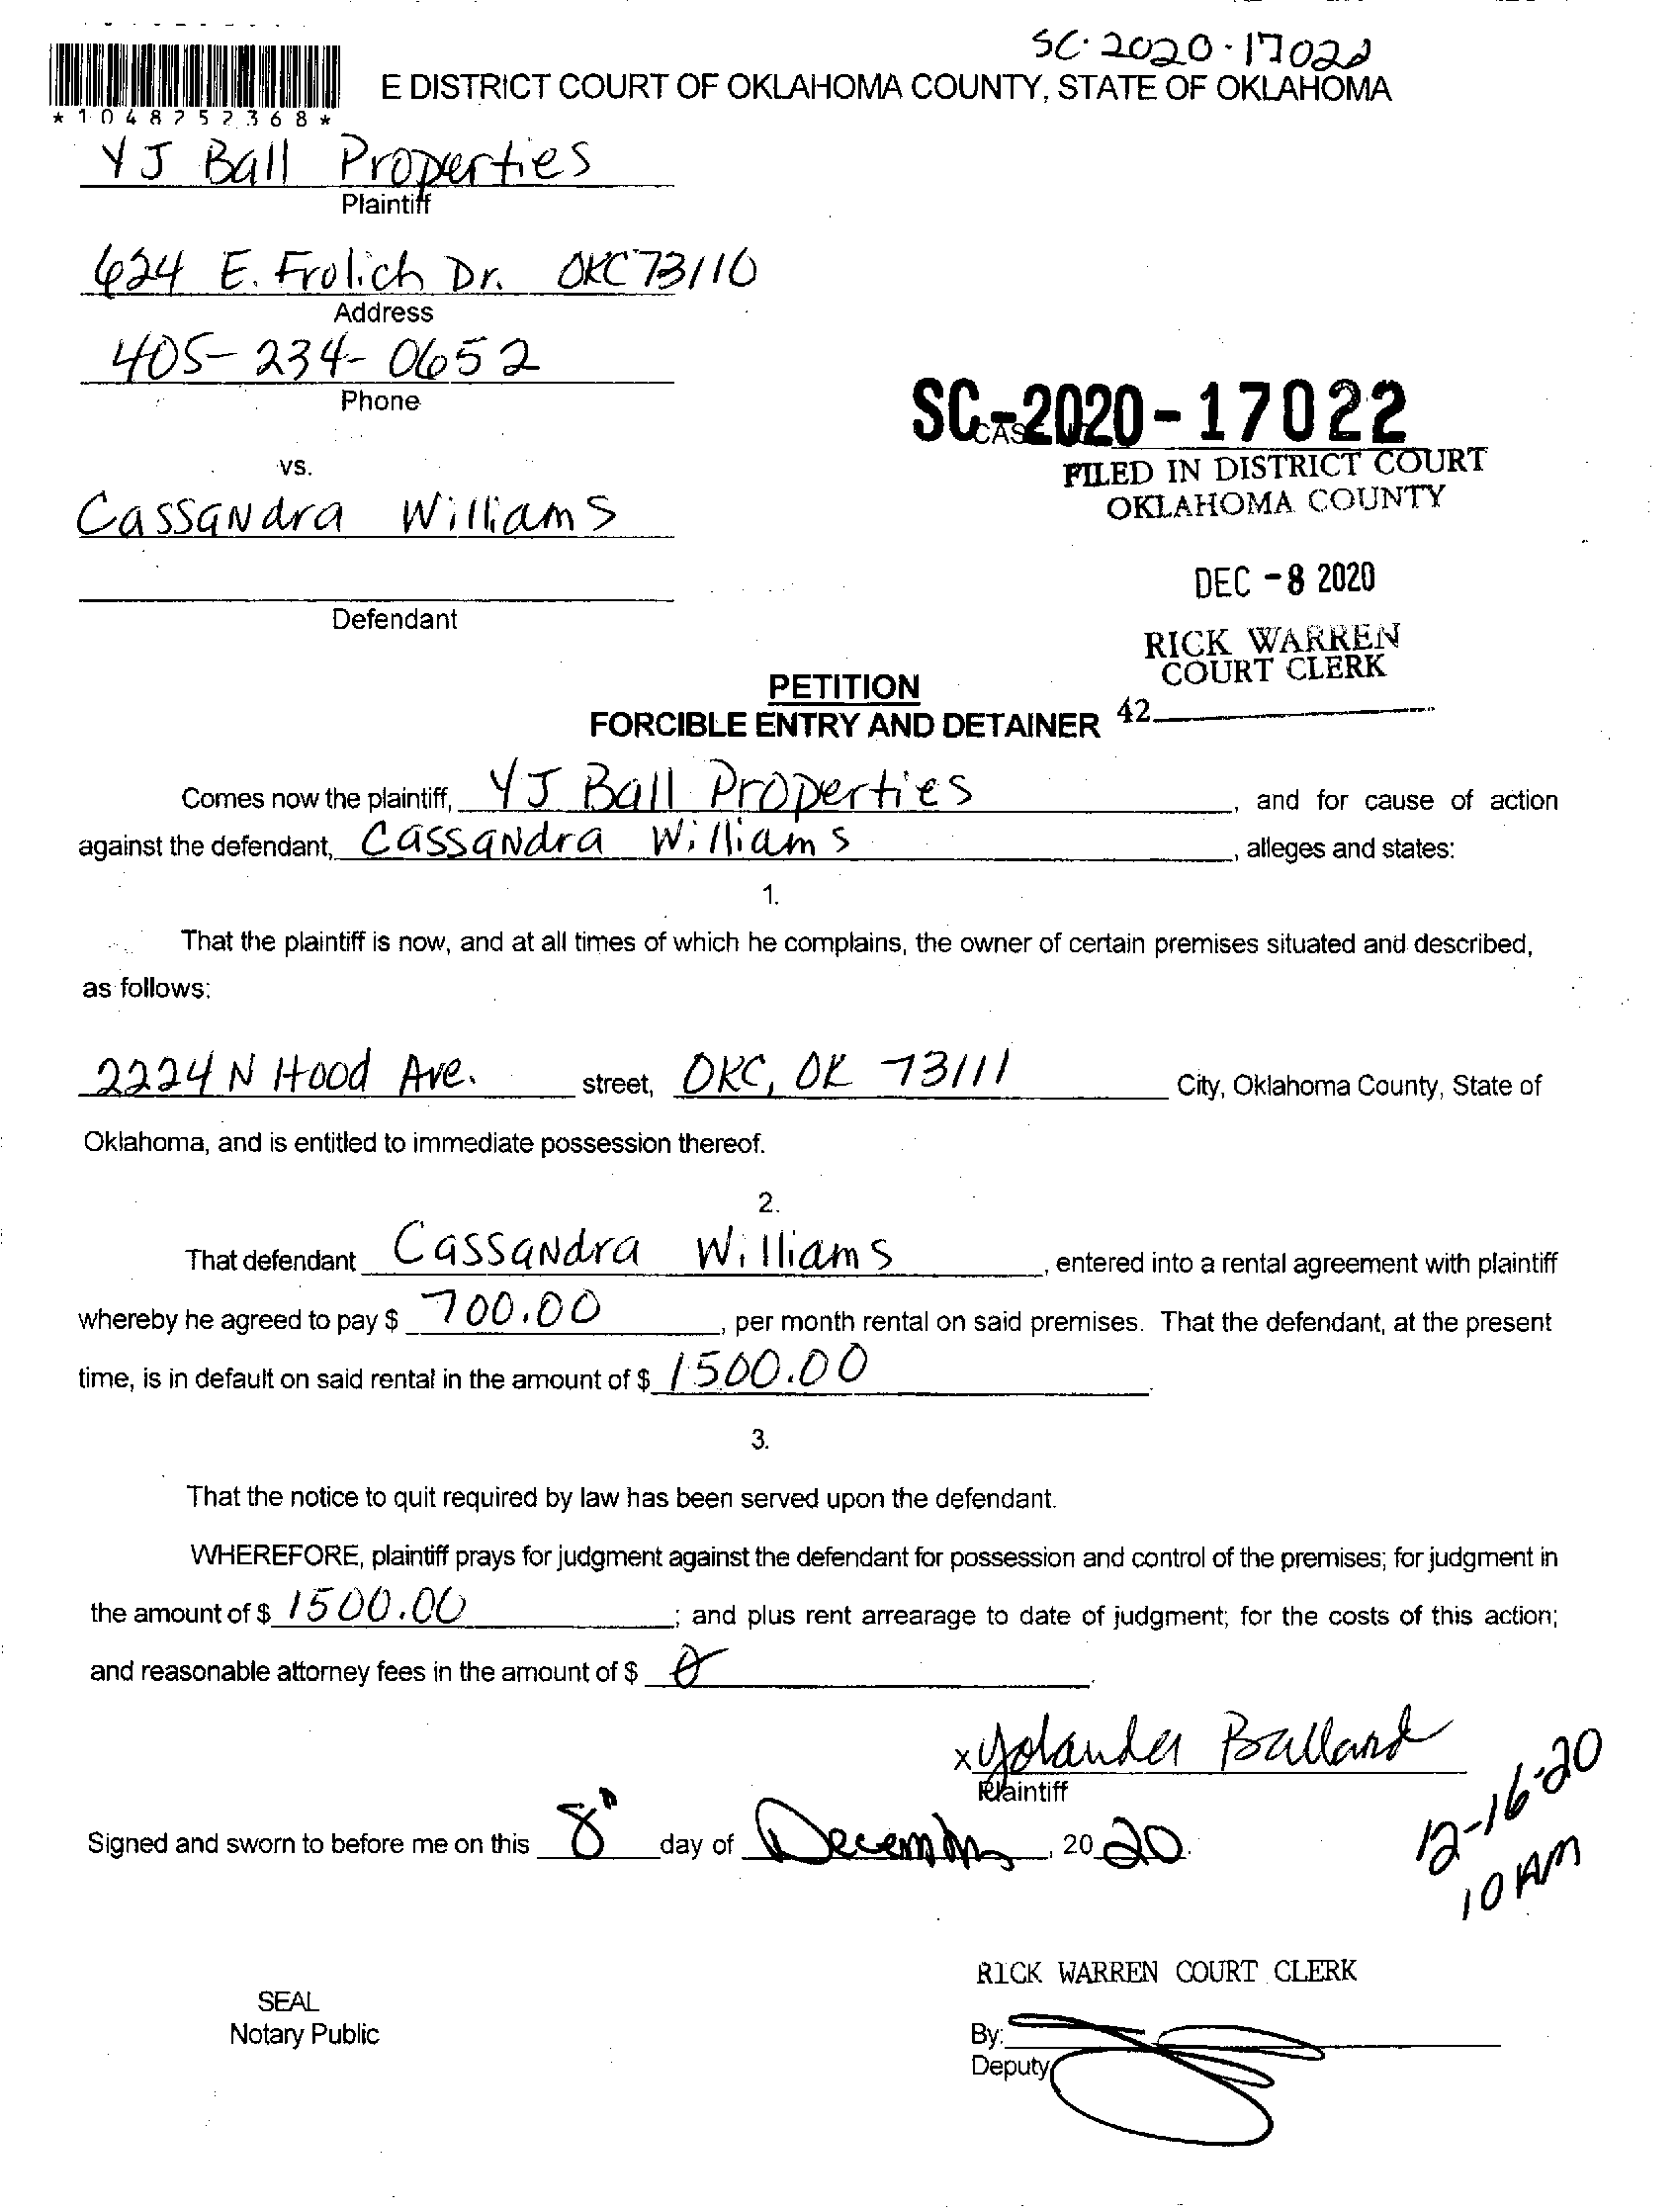 SC-2020-17022
E DISTRICT COURT OF OKLAHOMA COUNTY, STATE OF OKLAHOMA
*1048252368*
YJ Ball Properties
Plaintiff
624 E. Frolich Dr. OKC 73110
Address
405-234-0652
Phone
SC-2020-17022
CAS
FILED IN DISTRICT COURT
OKLAHOMA COUNTY
vs.
Cassandra Williams
DEC -8 2020
Defendant
RICK WARREN
COURT CLERK
PETITION
FORCIBLE ENTRY AND DETAINER
42
Comes now the plaintiff, YJ Ball Properties, and for cause of action
against the defendant, Cassandra Williams, alleges and states:
1.
That the plaintiff is now, and at all times of which he complains, the owner of certain premises situated and described,
as follows:
2224 N Hood Ave. street, OKC, OK 73111 City, Oklahoma County, State of
Oklahoma, and is entitled to immediate possession thereof.
2.
That defendant Cassandra Williams, entered into a rental agreement with plaintiff
whereby he agreed to pay $ 700.00, per month rental on said premises. That the defendant, at the present
time, is in default on said rental in the amount of $ 1500.00.
3.
That the notice to quit required by law has been served upon the defendant.
WHEREFORE, plaintiff prays for judgment against the defendant for possession and control of the premises; for judgment in
the amount of $ 1500.00; and plus rent arrearage to date of judgment; for the costs of this action;
and reasonable attorney fees in the amount of $ 0.
x Yolanda Ballard
Plaintiff
12-16-20
10 AM
Signed and sworn to before me on this 8th day of December, 2020.
RICK WARREN COURT CLERK
SEAL
Notary Public
By:
Deputy